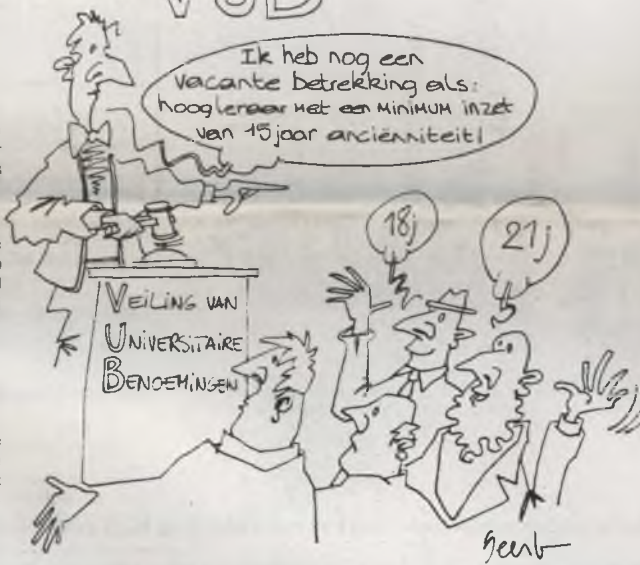 VUB
Ik heb nog een
vacante betrekking als:
hoogleraar met een MINIMUM inzet
van 15 jaar anciënniteit!
18j
21j
VEILING VAN
UNIVERSITAIRE
BENOEMINGEN